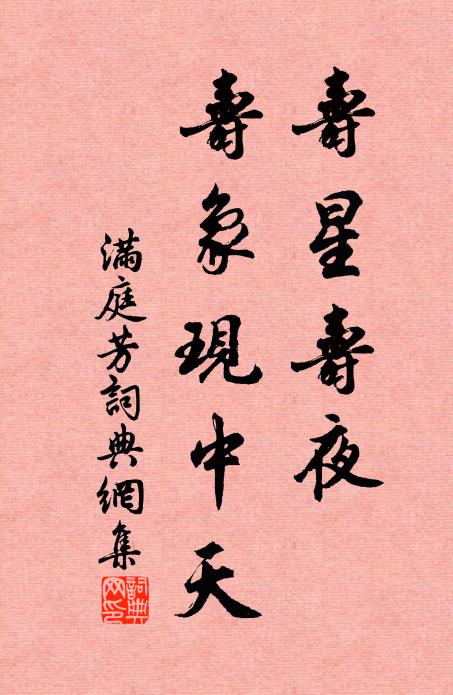 壽星壽夜
壽象現中天
滿庭芳詞典網集
詞典
网印